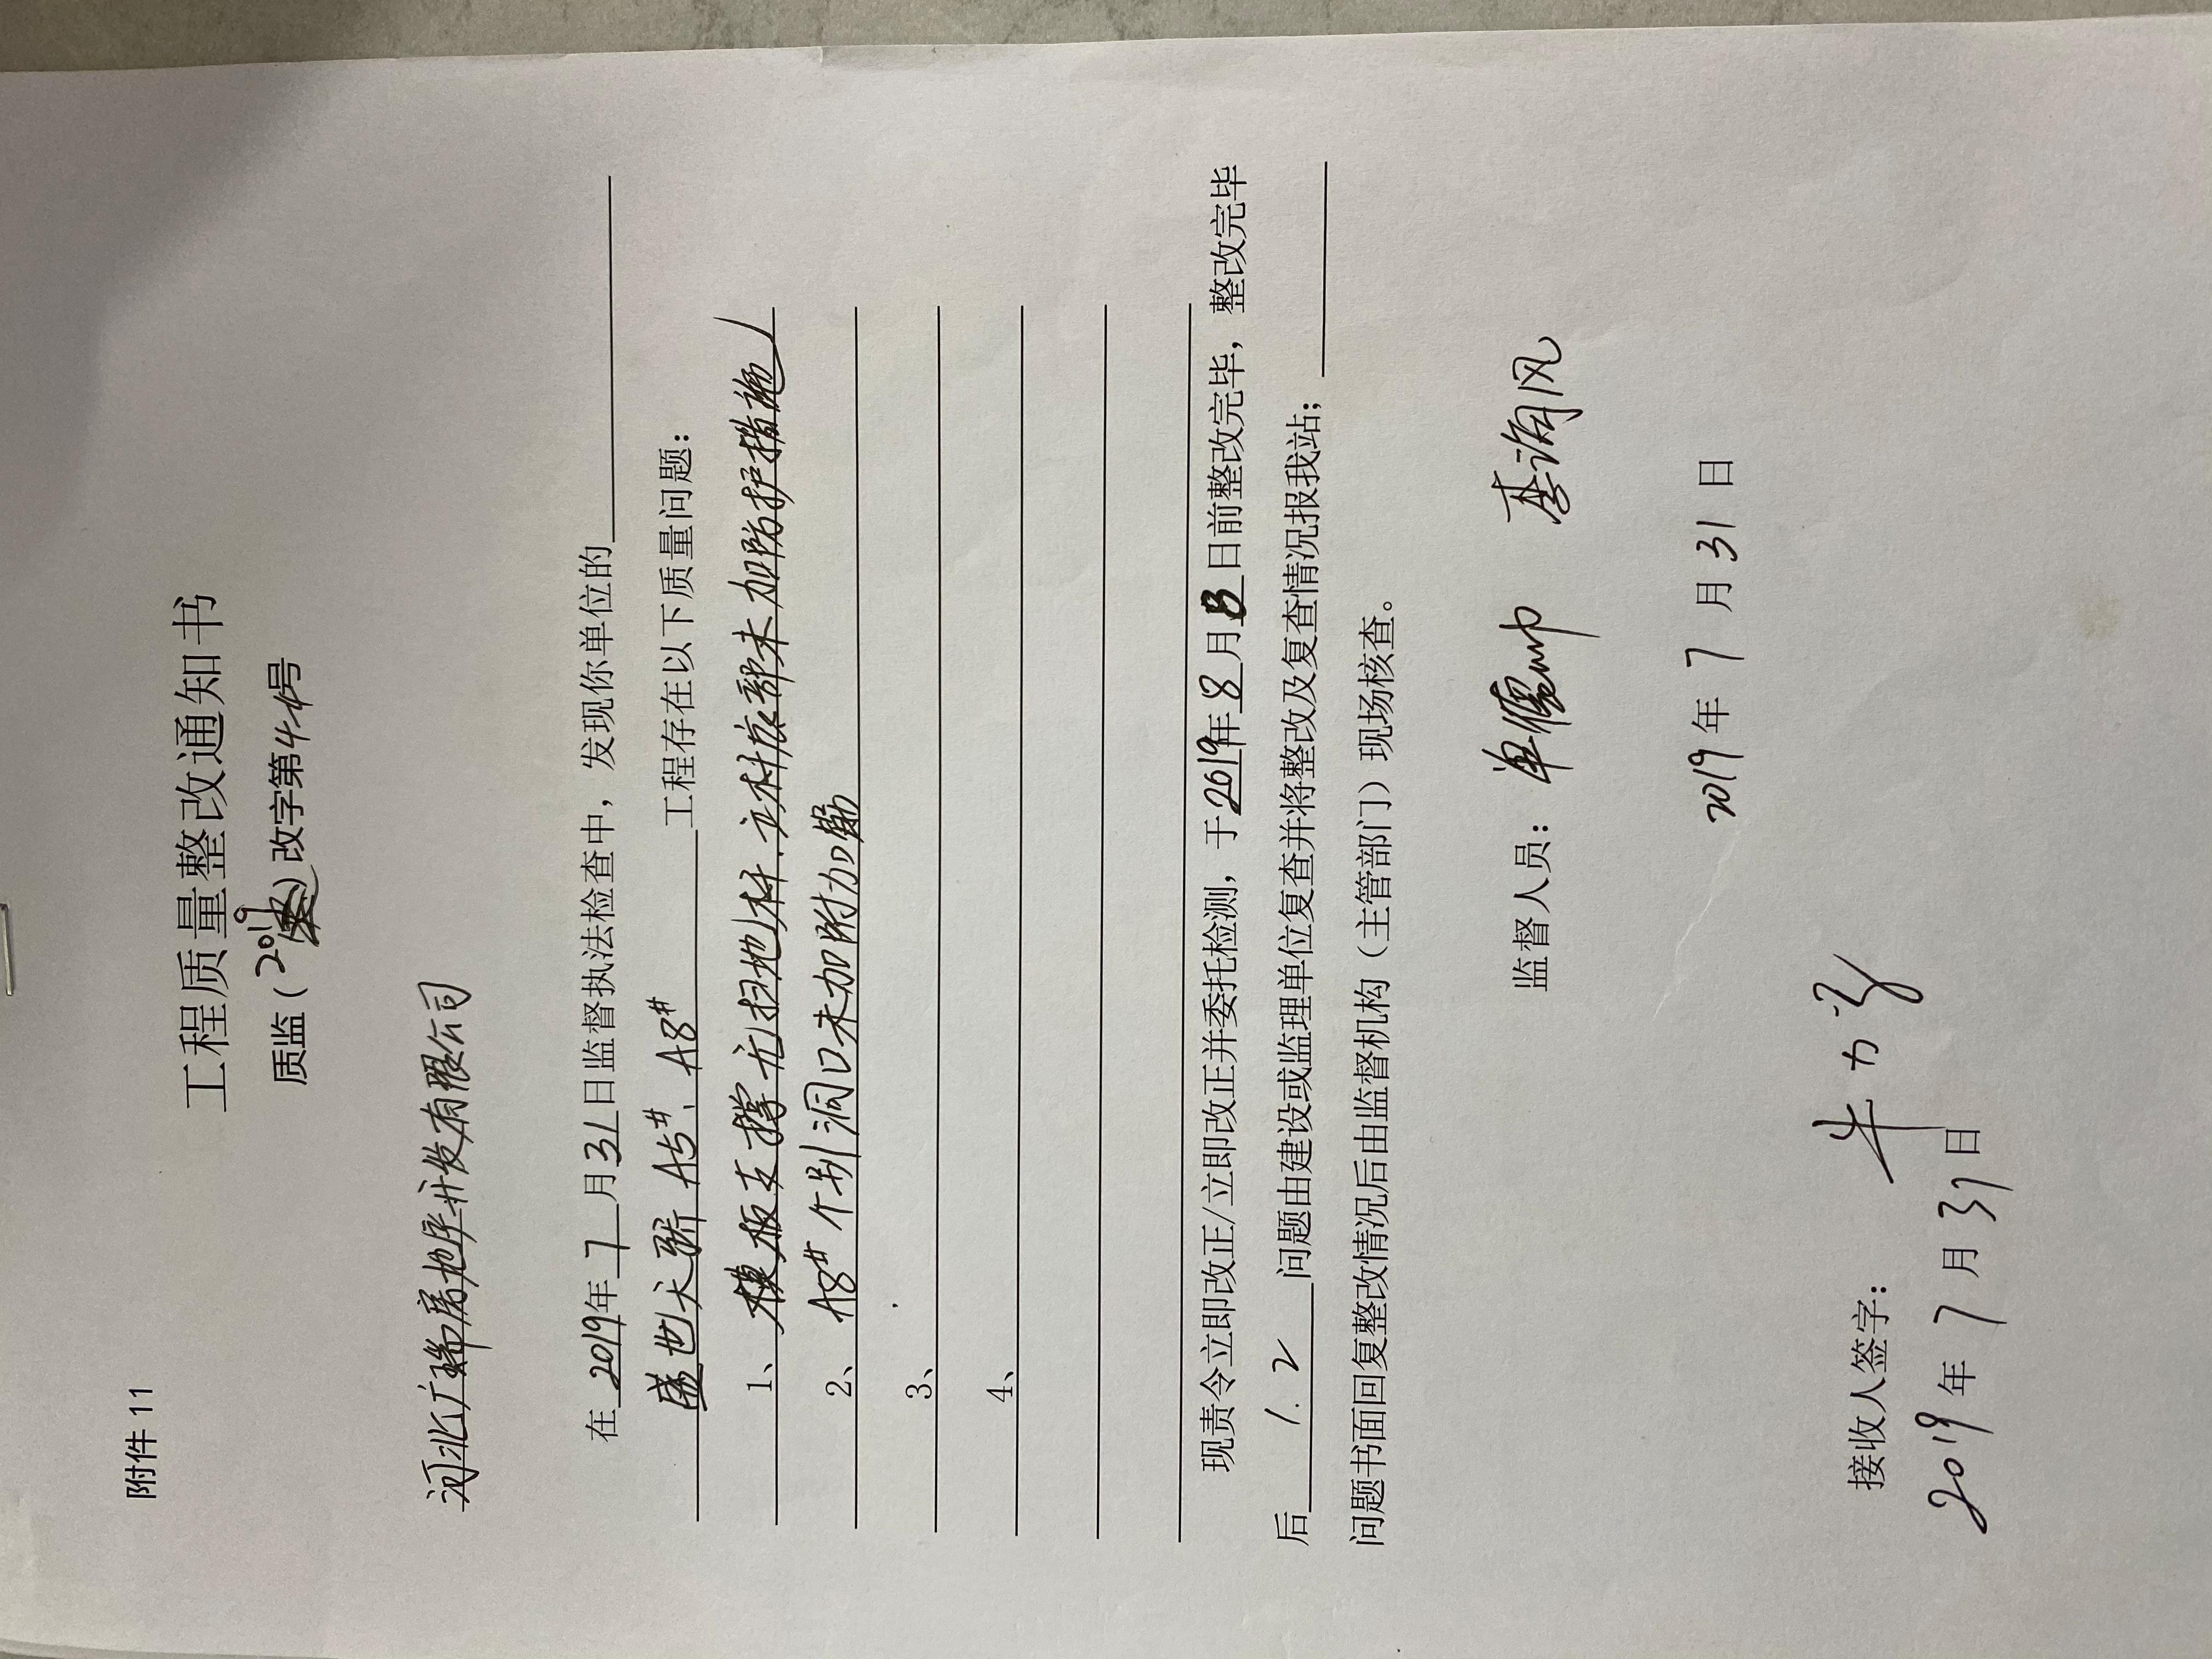 附件 11
工程质量整改通知书
质监（2019）改字第44号
河北广瑞房地产开发有限公司
在2019年7月31日监督执法检查中，发现你单位的
盛世天骄 A5#、A8# 工程存在以下质量问题：
1、模板支撑无扫地杆.立杆底部未加防护措施
2、A8#个别洞口未加附加筋
3、
4、
现责令立即改正/立即改正并委托检测，于2019年8月 日前整改完毕，整改完毕
后 1.2 问题由建设或监理单位复查并将整改及复查情况报我站；
问题书面回复整改情况后由监督机构（主管部门）现场核查。
监督人员： 李海风
2019年7月31日
接收人签字：
2019年7月31日